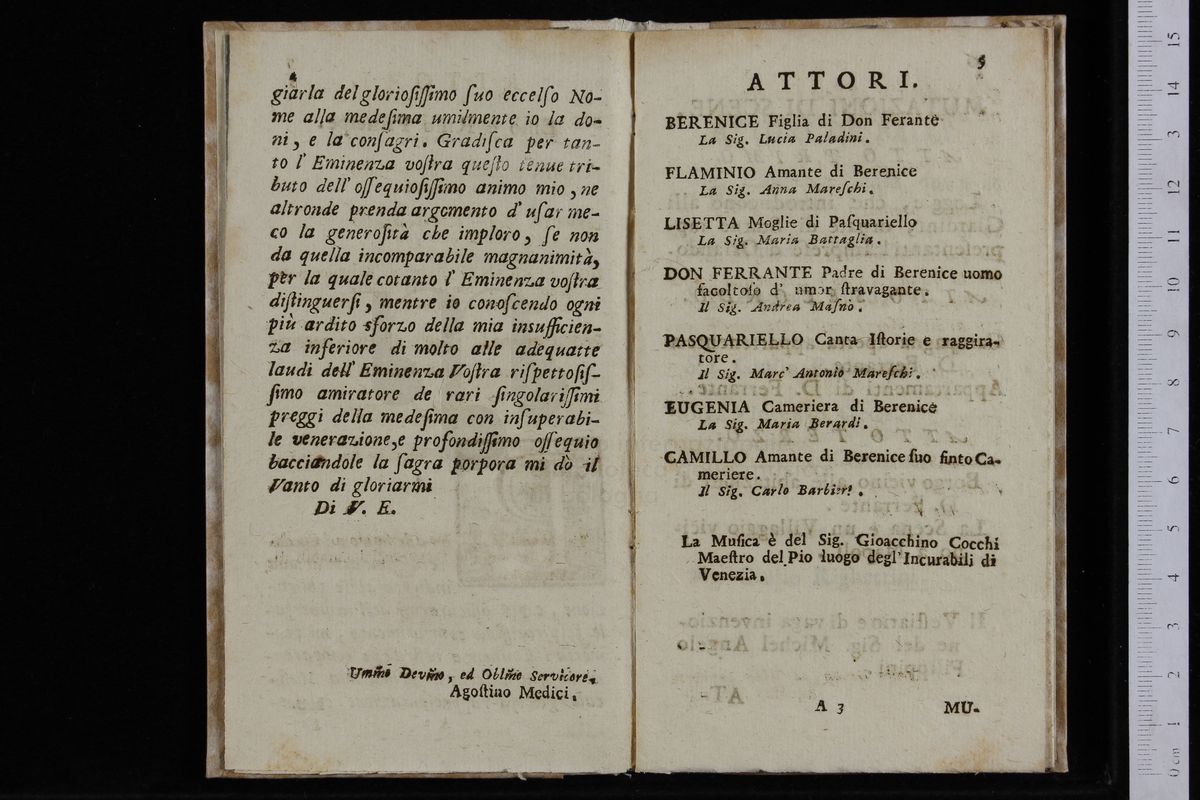 4
giarla del gloriosiſſimo ſuo eccelſo No-
me alla medeſima umilmente io la do-
ni, e la conſagri. Gradiſca per tan-
to l' Eminenza voſtra queſto tenue tri-
buto dell' oſſequioſiſſimo animo mio, ne
altronde prenda argomento d' uſar me-
co la generoſità che imploro, ſe non
da quella incomparabile magnanimità,
per la quale cotanto l' Eminenza voſtra
diſtinguerſi, mentre io conoſcendo ogni
più ardito sforzo della mia inſufficien-
za inferiore di molto alle adequatte
laudi dell' Eminenza Voſtra riſpettoſiſ-
ſimo amiratore de rari ſingolariſſimi
preggi della medeſima con inſuperabi-
le venerazione, e profondiſſimo oſſequio
bacciandole la ſagra porpora mi dò il
Vanto di gloriarmi
Di V. E.
Umm̃o Devm̃o, ed Oblm̃o Servitore.
Agoſtino Medici.
5
ATTORI.
BERENICE Figlia di Don Ferante
La Sig. Lucia Paladini.
FLAMINIO Amante di Berenice
La Sig. Anna Mareſchi.
LISETTA Moglie di Paſquariello
La Sig. Maria Battaglia.
DON FERRANTE Padre di Berenice uomo
facoltoſo d' umor ſtravagante.
Il Sig. Andrea Maſnò.
PASQUARIELLO Canta Iſtorie e raggira-
tore.
Il Sig. Marc' Antonio Mareſchi.
EUGENIA Cameriera di Berenice
La Sig. Maria Berardi.
CAMILLO Amante di Berenice ſuo finto Ca-
meriere.
Il Sig. Carlo Barbieri.
La Muſica è del Sig. Gioacchino Cocchi
Maeſtro del Pio luogo degl' Incurabili di
Venezia.
A 3 MU-
15
14
13
12
11
10
9
8
7
6
5
4
3
2
1
0 cm